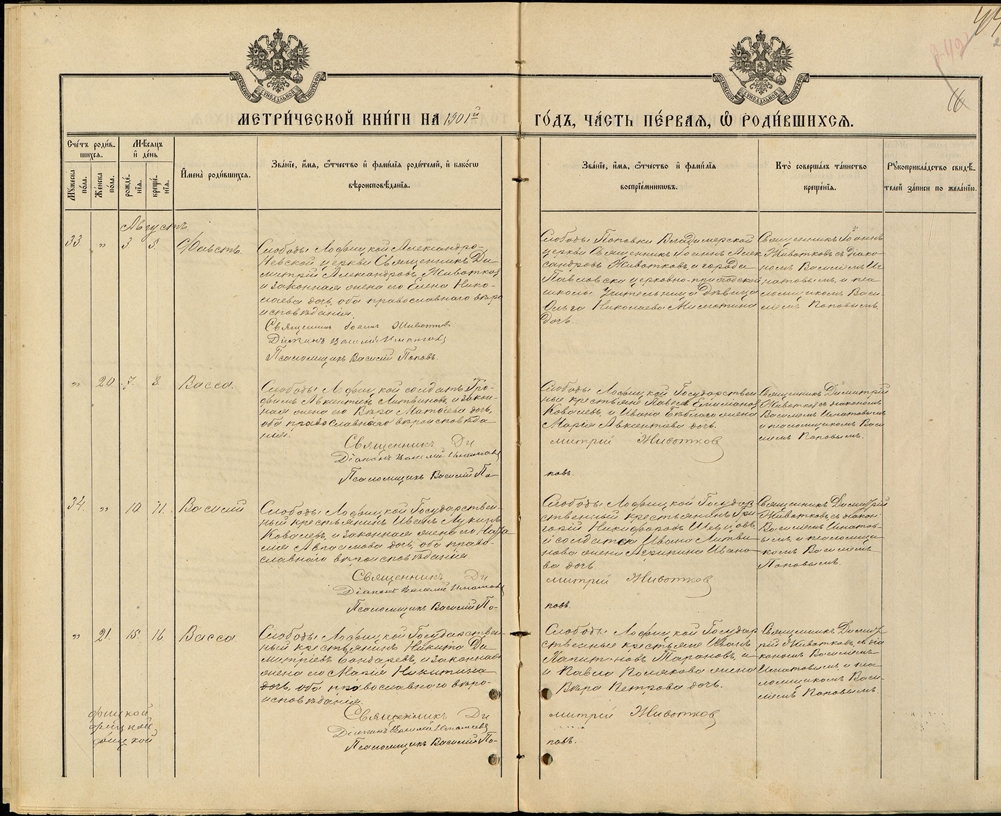 42
16
МЕТРИ́ЧЕСКОЙ КНИ́ГИ НА 1901й ГО́ДЪ, ЧА́СТЬ ПЕ́РВАЯ, Ѡ҆ РОДИ́ВШИХСѦ.
Сче́тъ роди́в-
шихсѧ.
Мꙋ́жеска по́ла.
Же́нска по́ла.
Мѣ́сѧцъ и де́нь
рожде́нїѧ.
креще́нїѧ.
И҆мена̀ роди́вшихсѧ.
Зва́нїе, и҆́мѧ, о҆́тчество и҆ фами́лїѧ роди́телей, и҆ како́гѡ
вѣроисповѣ́данїѧ.
Зва́нїе, и҆́мѧ, о҆́тчество и҆ фами́лїѧ
воспрїе́мникѡвъ.
Кто̀ соверша́лъ та́инство
креще́нїѧ.
Рꙋкоприкла́дство свидѣ́-
телей за́писи по жела́нїю.
Августъ
33. " 3 5.
Слободы Лофицкой Александро-
Невской церкви Священникъ Ди-
митрій Александровъ Животков
и законная жена его Елена Нико-
лаева дочь, оба православнаго веро-
исповѣданія.
Священник Іоанн Животков
Діаконъ Василій Игнатовъ
Псаломщикъ Василій Поповъ.
Слободы Поповки Владимерской
церкви Священникъ Іоаннъ Алек-
сандровъ Животковъ и города
Павловска церковно-приходской
школы Учительница Дѣвица
Ольга Николаева
дочь.
Священникъ Іоаннъ
Животковъ съ діако-
номъ Василіемъ Иг-
натовымъ и пса-
ломщикомъ Васи-
ліемъ Поповымъ.
" 20. 7. 8. Васса
Слободы Лофицкой солдатъ Тро-
фимъ Авксентіевъ Литвиновъ и закон-
ная жена его Вѣра дочь,
оба православнаго вероисповѣда-
нія.
Священникъ Ди
Діаконъ Василій Игнатовъ
Псаломщикъ Василій По-
Слободы Лофицкой Государствен
ный крестьянинъ Павелъ
Ковалевъ, и Ивана жена
Марія Авксентіева дочь
митрій Животков
повъ.
Священникъ Димитрій
Животковъ съ діакономъ
Василіемъ Игнатовымъ
и псаломщикомъ Васи
ліемъ Поповымъ.
34. " 10 11. Василій
Слободы Лофицкой Государствен-
ный крестьянинъ Иванъ Лукинъ
Ковалевъ, и законная жена его Ната
лія дочь, оба право-
славнаго вероисповѣданія.
Священникъ Ди
Діаконъ Василій Игнатовъ
Псаломщикъ Василій По-
Слободы Лофицкой Государ
ственный крестьянинъ Гри
горій Никифоровъ Шевцовъ,
и солдата Ивана Литви
нова жена Ивано
ва дочь
митрій Животков
повъ.
Священникъ Димитрій
Животковъ съ діакон
Василіемъ Игнатов-
ымъ, и псаломщи-
комъ Василіемъ
Поповымъ.
" 21. 15 16 Васса
Слободы Лофицкой Государствен
ный крестьянинъ Никита Ди
митріевъ Бондаревъ, и законная
жена его Марія Никитина
дочь, оба православнаго веро-
исповѣданія.
Священникъ Ди
Діаконъ Василій Игнатовъ
Псаломщикъ Василій По-
Слободы Лофицкой Государ
ственные крестьяне Иванъ
Капитоновъ Тарановъ, и
Павла Полякова жена
Вѣра Петрова дочь.
митрій Животков
повъ.
Священникъ Димит
рій Животковъ съ діа
кономъ Василіемъ
Игнатовымъ и пса
ломщикомъ Васи-
ліемъ Поповымъ.
фицкой
фицкой
фицкой